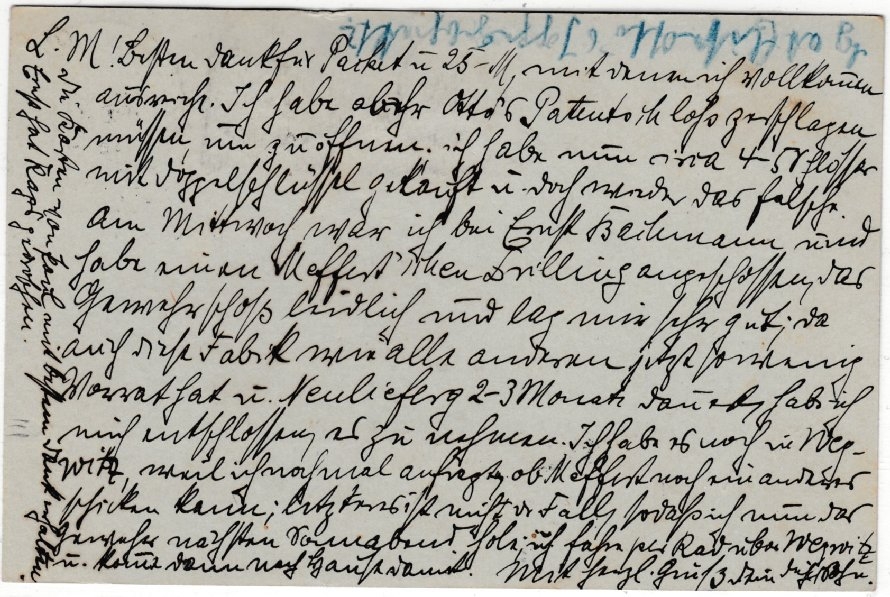 L. M! Besten Dank für Packet u 25 M, mit denen ich vollkomen
ausreiche. Ich habe aber Otto's Patentschloss zerschlagen
müssen, um zu öffnen. ich habe nun circa 4-5 Schlösser
mit Doppelschlüssel gekauft u. doch wieder das falsche
Am Mittwoch war ich bei Ernst Bachmann und
habe einen Meffert'schen Drilling angeschossen, das
Gewehr schoß leidlich und lag mir sehr gut; da
auch diese Fabrik wie alle anderen jetzt so wenig
Vorrat hat u. Neulieferg 2-3 Monate dauert, habe ich
mich entschlossen, es zu nehmen. Ich habe es noch in Weg-
witz, weil ich nochmal anfragte, ob Meffert noch ein anderes
schicken kann; letzteres ist nicht der Fall, sodaß ich nun das
Gewehr nächsten Sonnabend hole, ich fahre per Rad über Wegwitz
u. kome dann nach Hause damit. Mit herzl. Gruß Dein Sohn.
die Karten von mit bestem Dank erhalten.
Ernst hat